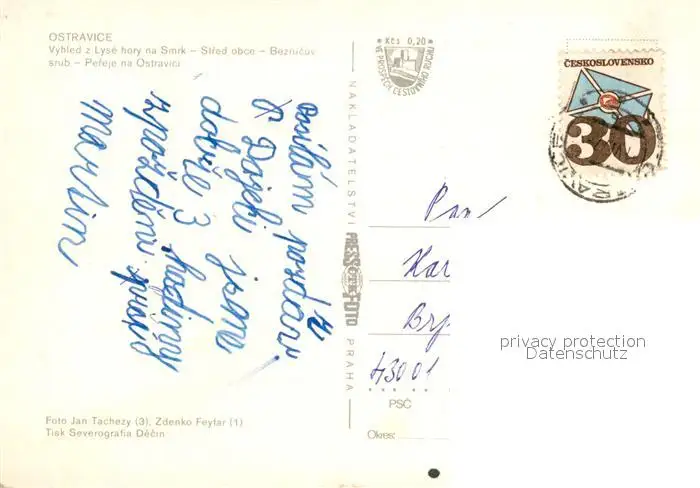 OSTRAVICE
Vyhled z Lysé hory na Smrk – Střed obce – Bezručův
srub – Peřeje na Ostravici
posílám pozdrav
Dojeli jsme
dobře 3 hodiny
zpoždění
Martin
NAKLADATELSTVÍ PRESSFOTO PRAHA
Kčs 0,20
VE PROSPĚCH CESTOVNÍHO RUCHU
ČESKOSLOVENSKO
30
Pan
Kar
43001
PSČ
Okres:
privacy protection
Datenschutz
Foto Jan Tachezy (3), Zdenko Feyfar (1)
Tisk Severografia Děčín